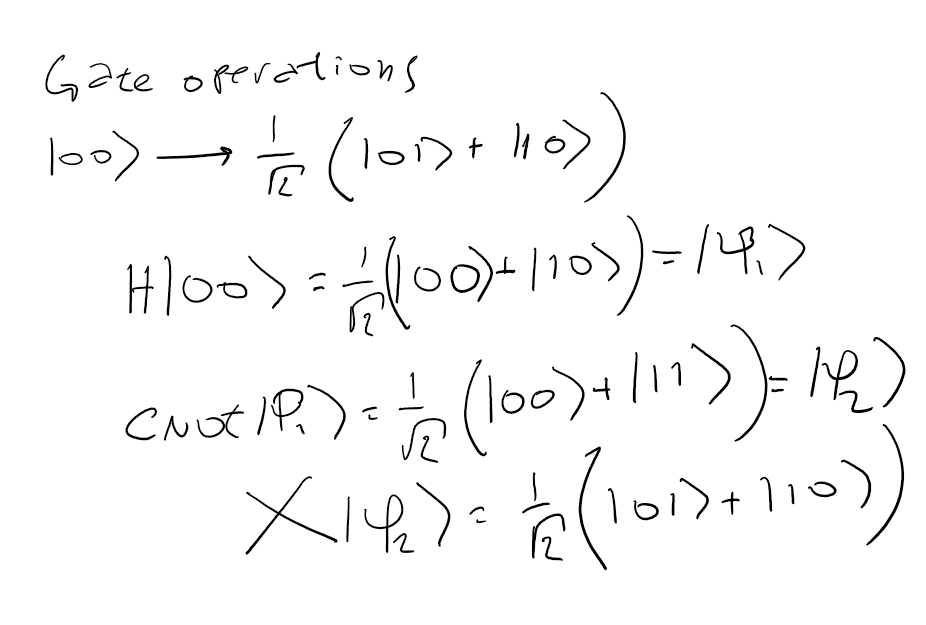 Gate operations
|00⟩ → 1/√2 (|01⟩ + |10⟩)
H|00⟩ = 1/√2 (|00⟩ + |10⟩) = |φ₁⟩
CNOT|φ₁⟩ = 1/√2 (|00⟩ + |11⟩) = |φ₂⟩
X|φ₂⟩ = 1/√2 (|01⟩ + |10⟩)